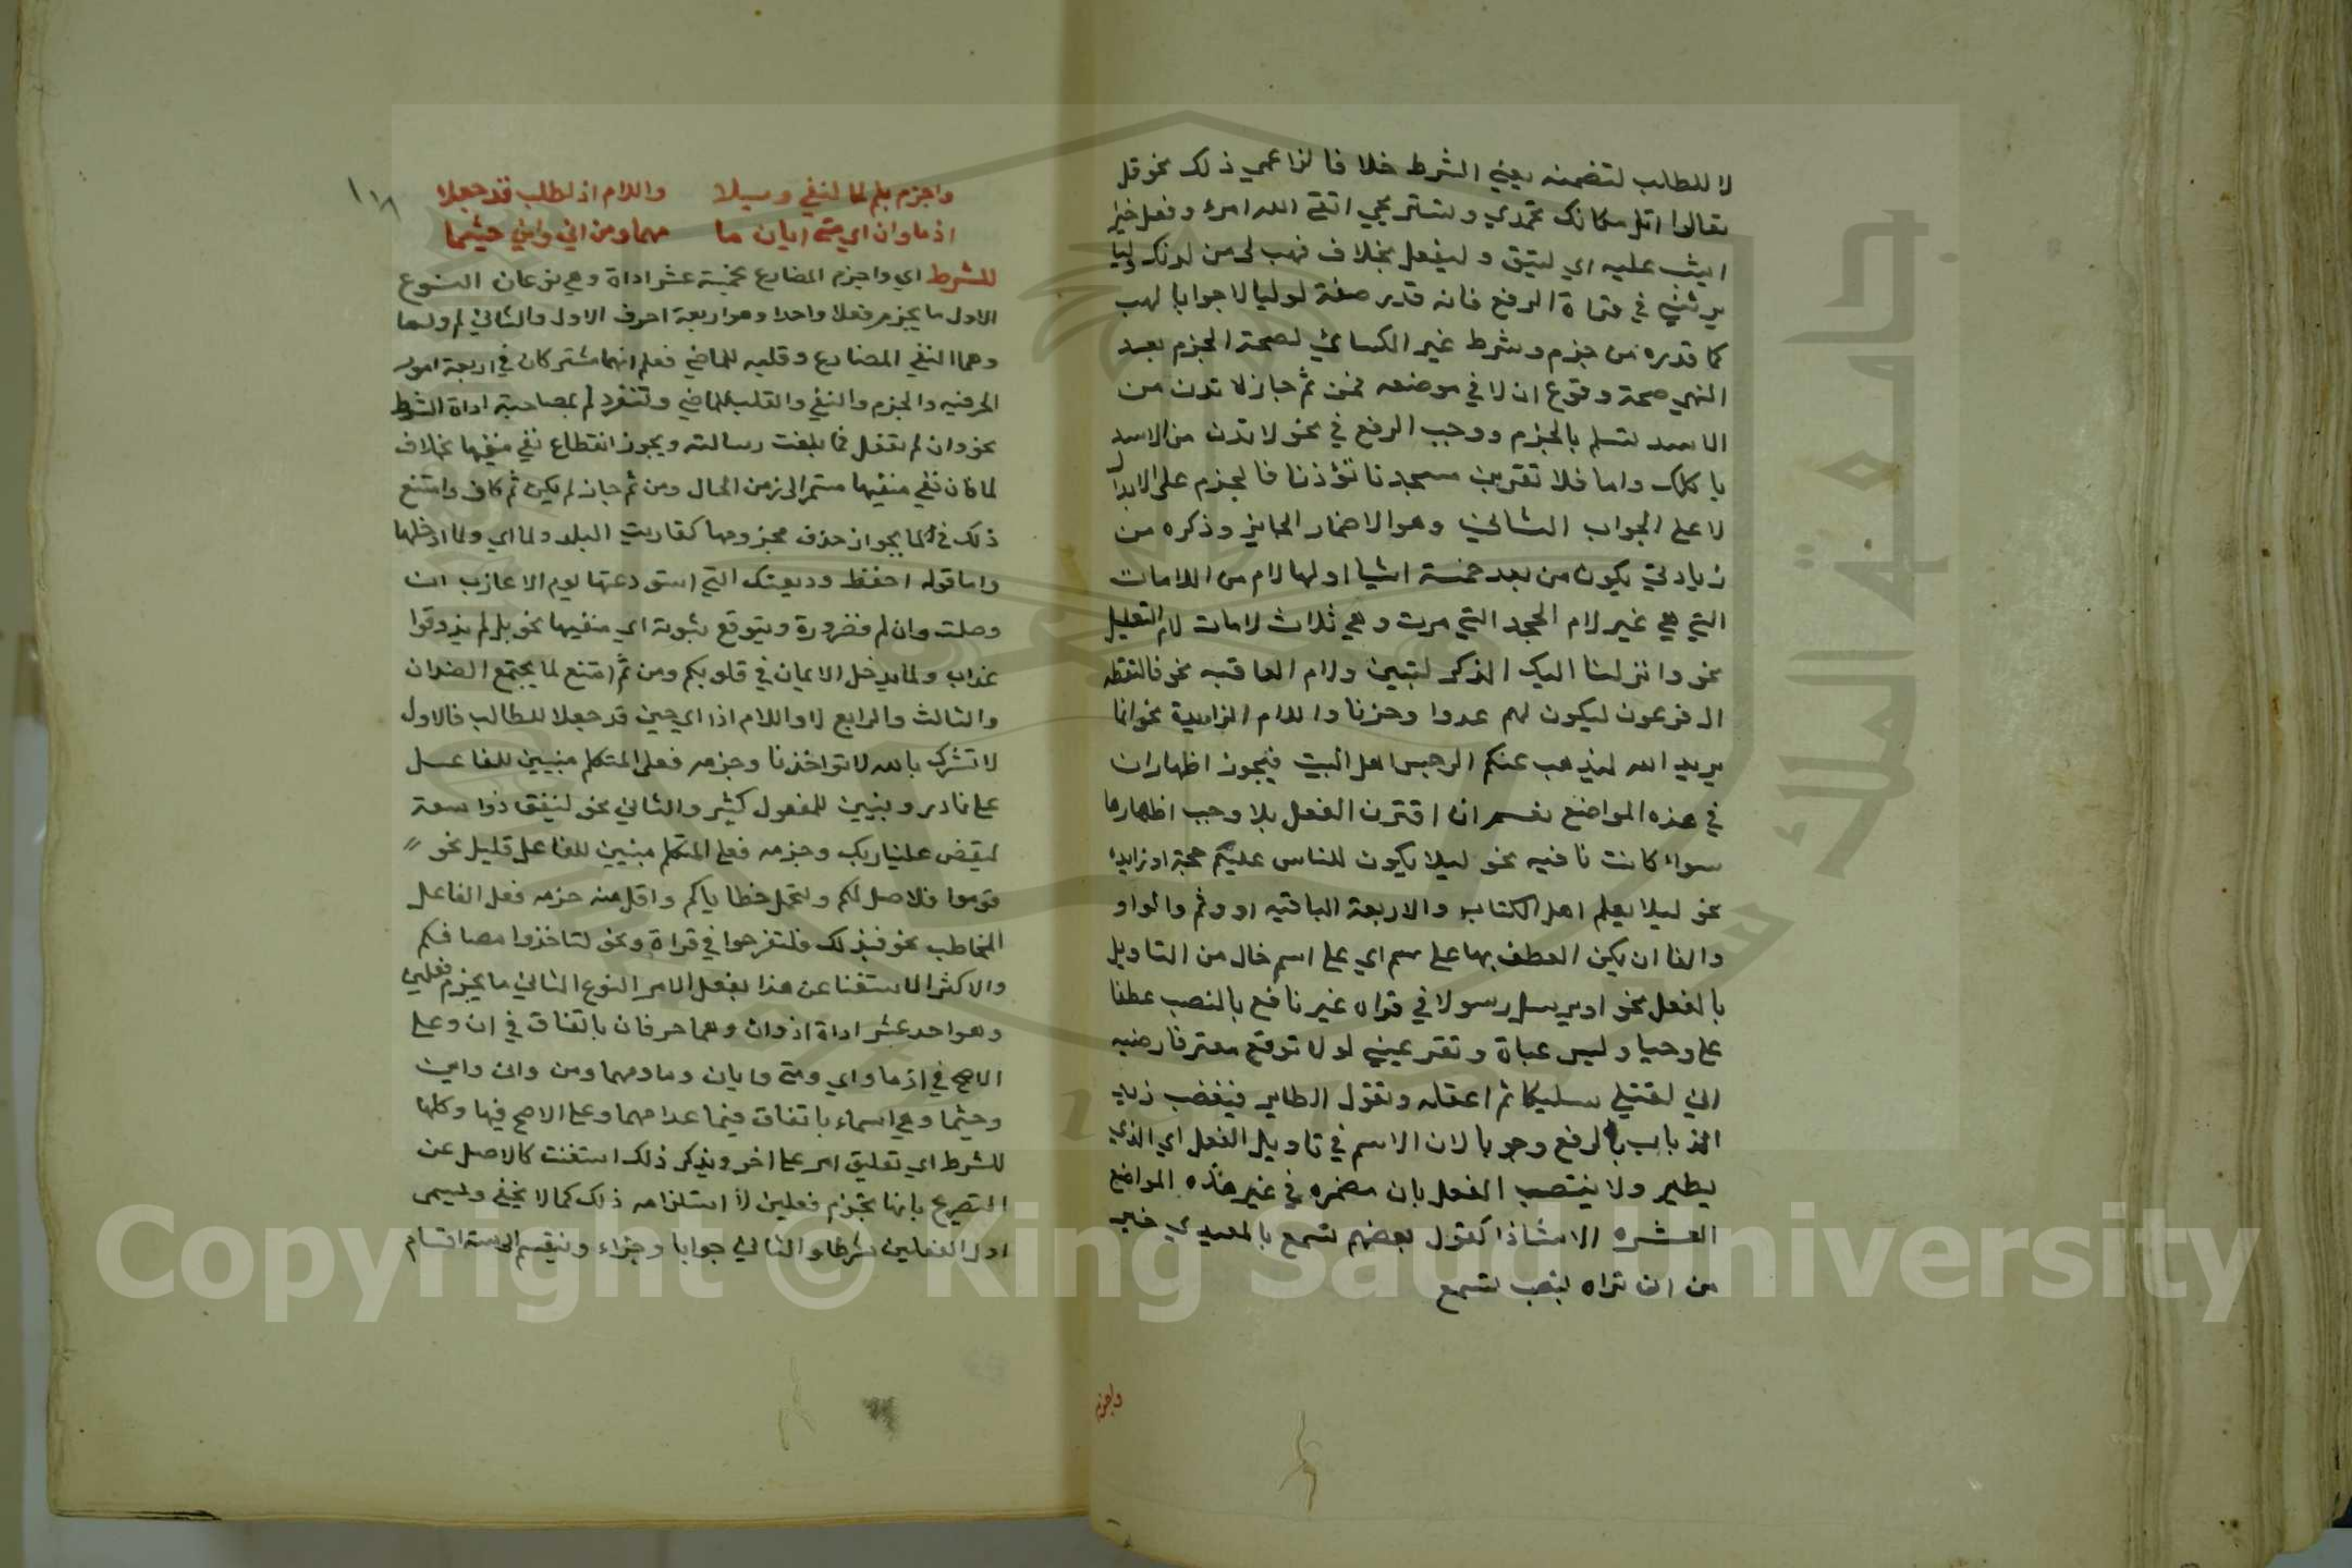 لا للطلب لتضمنه يعني الشرط خلافا لزاعمي ذلك نحو قل
تعالوا اتل مكانك تحمدي وتستريحي اتقى الله امرء وفعل خيرا
ايثب عليه اي ليتق وليفعل بخلاف فهب لى من لدنك وليا
يرثني في قراة الرفع فانه قدر صفة لوليا لا جوابا لهب
كما قدره من جزم وشرط غير الكسائي لصحة الجزم بعد
النهي صحة وقوع ان لا في موضعه فمن ثم جاز لا تدن من
الاسد تسلم بالجزم ووجب الرفع في نحو لا تدن من الاسد
ياكلك واما فلا تقربن مسجدنا تؤذنا فالجزم على الابدال
لا على الجواب الثاني وهو الاضمار الجايز وذكره من
زيادتي يكون من بعد خمسة اشيا اولها لام من اللامات
التي هي غير لام الجحد التي مرت وهي ثلاث لامات لام التعليل
نحو وانزلنا اليك الذكر لتبين ولام العاقبه نحو فالتقطه
ال فرعون ليكون لهم عدوا وحزنا واللام الزايدة نحو انما
يريد الله ليذهب عنكم الرجس اهل البيت فيجوز اظهار ان
في هذه المواضع نعم ان اقترن الفعل بلا وجب اظهارها
سواء كانت نافيه نحو ليلا يكون للناس عليكم حجة او زايدة
نحو ليلا يعلم اهل الكتاب والاربعة الباقيه او وثم والواو
والفا ان يكن العطف بها على سم اي على اسم خال من التاويل
بالفعل نحو او يرسل رسولا في قراه غير نافع بالنصب عطفا
على وحيا ولبس عباة وتقر عيني لولا توقع معتر فارضيه
اني لقتلي سليكا ثم اعقله وتقول الطاير فيغضب زيد
الذباب بالرفع وجوبا لان الاسم في تاويل الفعل اي الذي
يطير ولا ينتصب الفعل بان مضمره في غير هذه المواضع
العشره الا شاذا كقول بعضهم تسمع بالمعيدي خير
من ان تراه بنصب تسمع
واجزم
واجزم بلم لما لنفي وسيلا واللام اذ لطلب قد جعلا
اذما وان اي متى ايان ما مهما ومن اني واين حيثما
للشرط اي واجزم المضارع بخمسة عشر اداة وهي نوعان النوع
الاول ما يجزم فعلا واحدا وهو اربعة احرف الاول والثاني لم ولما
وهما النفي المضارع وقلبه للماضي فعلم انهما مشتركان في اربعة امور
الحرفيه والجزم والنفي والقلب للماضي وتنفرد لم بمصاحبة اداة الشرط
نحو وان لم تفعل فما بلغت رسالته ويجوز انقطاع نفي منفيها بخلاف
لما فان نفي منفيها مستمر الى زمن الحال ومن ثم جاز لم يكن ثم كان وامتنع
ذلك في لما يجواز حذف مجزومها كقاربت البلد ولما اي ولما ادخلها
واما قوله احفظ وديعتك التي استودعتها يوم الاعازب ان
وصلت وان لم فضرورة ويتوقع ثبوته اي منفيها نحو بل لم يذوقوا
عذاب ولما يدخل الايمان في قلوبكم ومن ثم امتنع لما يجتمع الضدان
والثالث والرابع لا واللام اذا اي حين قد جعلا للطلب فالاول
لا تشرك بالله لا تواخذنا وجزمه فعلى المتكلم مبنيين للفاعل
على نادر وبنيين للمفعول كثير والثاني نحو لينفق ذوا سعة
ليقض علينا ربك وجزمه فعلى المتكلم مبنيين للفاعل قليل نحو
قوموا فلاصل لكم ولنحمل خطاياكم واقل منه جزمه فعل الفاعل
المخاطب نحو فبذلك فلتفرحوا في قراة ونحو لتاخذوا مصافكم
والاكثر الاستغنا عن هذا بفعل الامر النوع الثاني ما يجزم فعلين
وهو احد عشر اداة اذ وان وهما حرفان باتفاق في ان وعلى
الاصح في اذما واي ومتى وايان وما ومهما ومن وانى واين
وحيثما وهي اسماء باتفاق فيما عدا مهما وعلى الاصح فيها وكلها
للشرط اي تعليق امر على اخر وبذكر ذلك استغنت كالاصل عن
التصريح بانها تجزم فعلين لا استلزامه ذلك كما لا يخفى ويسمى
اول الفعلين شرطا والثاني جوابا وجزاء وينقسم الى ستة اقسام